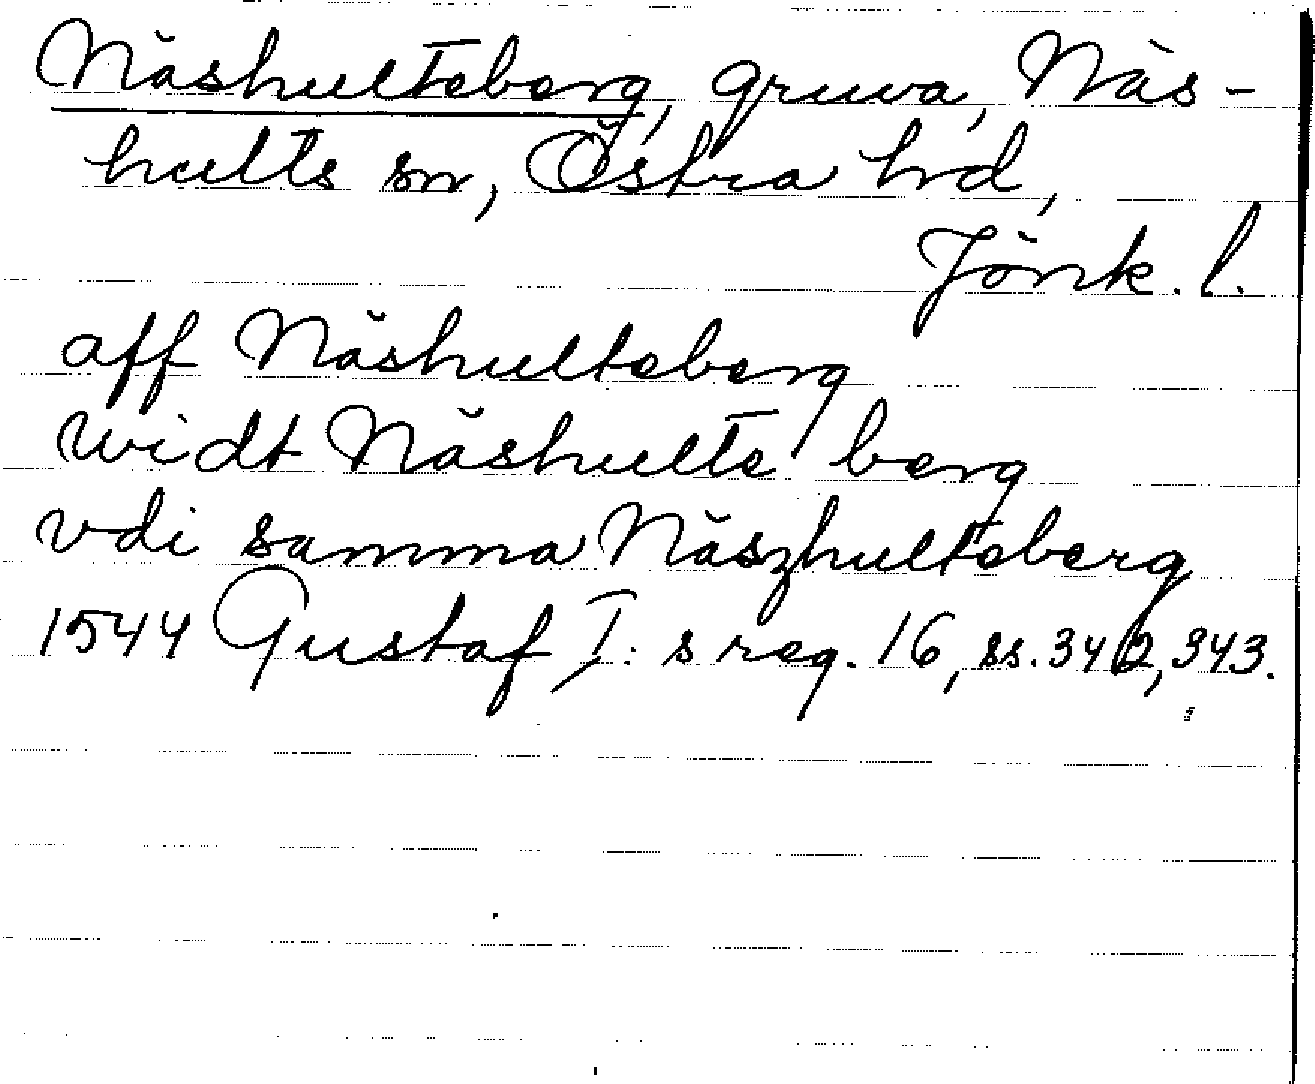 Näshulteberg, gruva, Näs-
hults sn, Östra hd,
Jönk. l.
aff Näshulteberg
widt Näshulte berg
vdi samma Näszhulteberg
1544 Gustaf I: s reg. 16, ss. 342, 343.